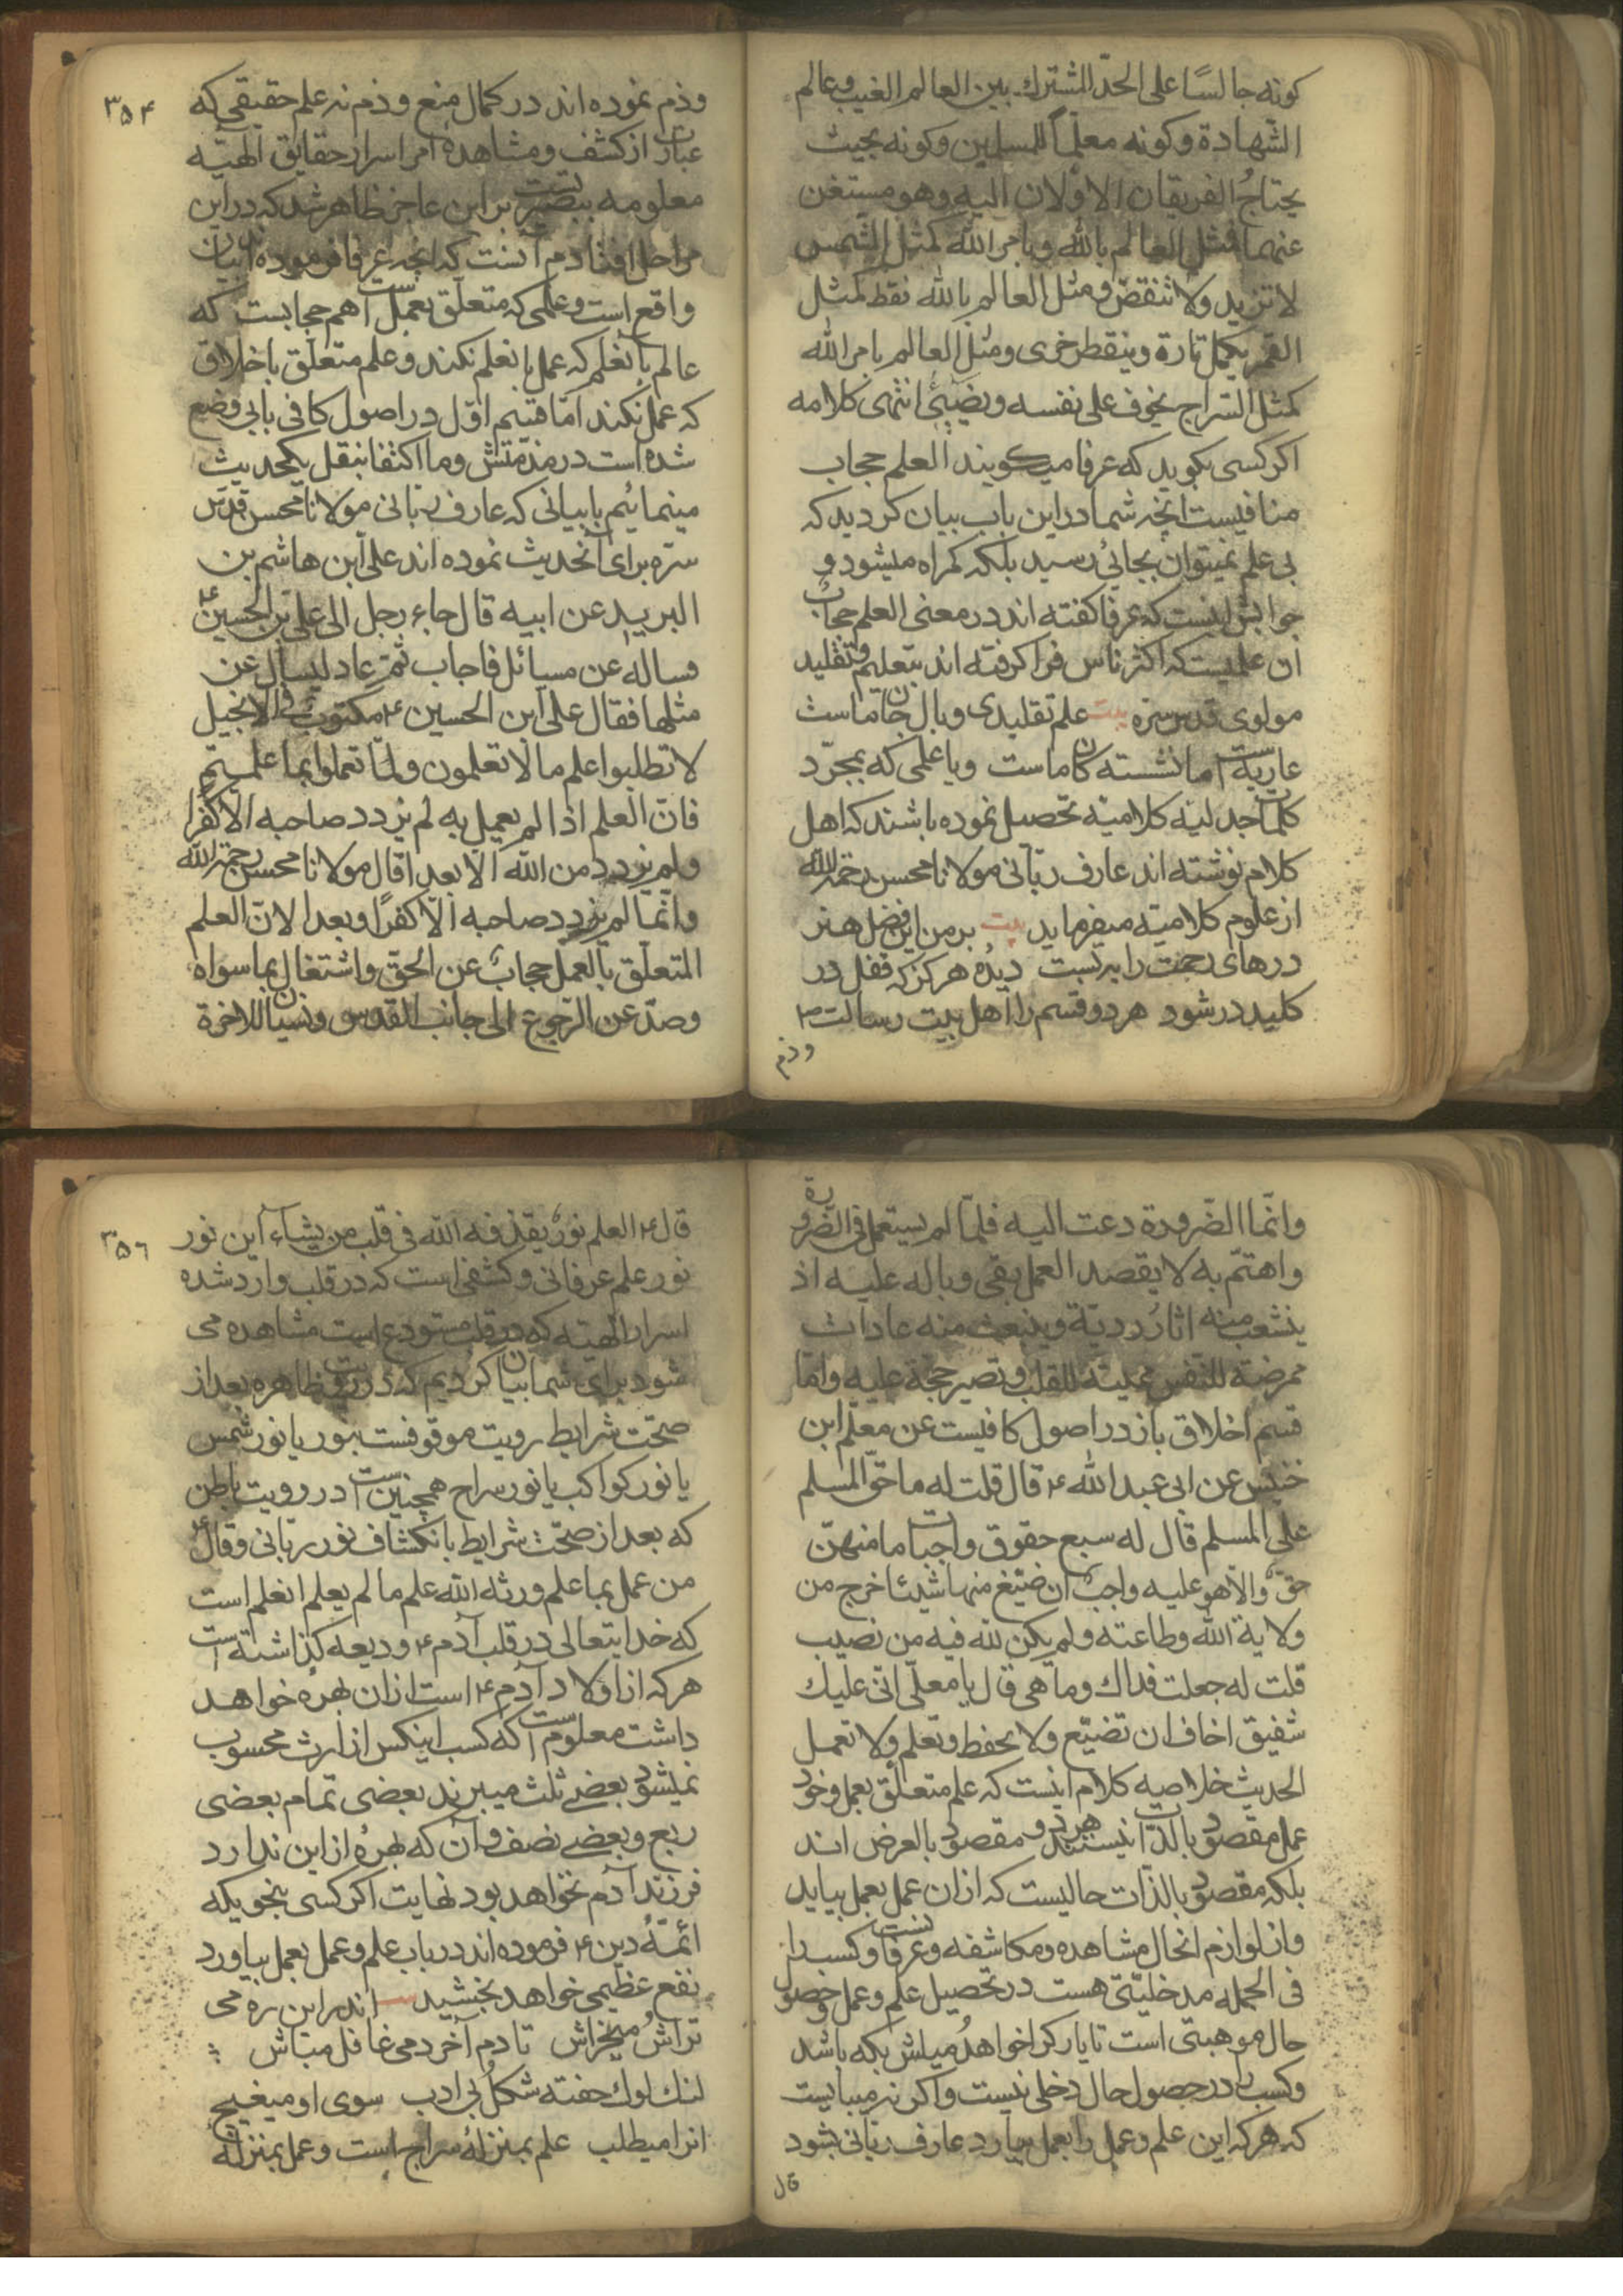 كونه جالسًا على الحدّ المشترك بين العالم الغيب وعالم
الشهادة وكونه معلّماً للمسلمين وكونه بحيث
يحتاجُ الفريقان الاولان اليه وهو مستغن
عنهما فمثل العالم بالله وبامر الله كمثل الشمس
لا تزيد ولا تنقص ومثل العالم بالله فقط كمثل
القمر يكمل تارة وينقص اخرى ومثل العالم بامر الله
كمثل السّراج يحرق على نفسه ويضيئ انتهى كلامه
اكر كسى بكويد كه عرفا ميكويند العلم حجاب
منافيست انچه شما در اين باب بيان كرديد كه
بى علم نميتوان بجائى رسيد بلكه كمراه ميشود و
جوابش اينست كه عرفا كفته اند در معنى العلم حجابٌ
ان علميست كه اكثر ناس فرا كرفته اند بتعليم وتقليد
مولوى قدس سره بيت علم تقليدى وبال جان ماست
عاريه است اما نشسته كان ماست ويا علمى كه بمجرّد
كلمات جدليّه كلاميّه تحصيل نموده باشند كه اهل
كلام نوشته اند عارف ربّانى مولانا محسن رحمه الله
از علوم كلاميّه ميفرمايد بيت بر من اين فضل هنر
درهاى رحمت را به بست ديدۀ هركز كه قفل در
كليد در شود هر دو قسم را اهل بيت رسالت م
وذم
٣٥٤
وذم نموده اند در كمال منع وذم نه علم حقيقى كه
عبارت از كشف ومشاهدهٔ امر اسرار حقايق الهيّه
معلومه ببصيرتست بر اين عاجز ظاهر شد كه در اين
مراحل افتادم آنست كه انچه عرفا فرموده اند بيان
واقع است وعلمى كه متعلّق بعمل است هم حجابست كه
عالم بانعلم كه عمل بانعلم نكند وعلم متعلّق باخلاق
كه عمل نكند امّا قسم اوّل در اصول كافى بابى وضع
شده است در مذمّتش وما اكتفا بنقل يكحديث
مينمائيم با بيانى كه عارف ربّانى مولانا محسن قدّس
سرّه براى آنحديث نموده اند على ابن هاشم بن
البريد عن ابيه قال جاء رجل الى على بن الحسين ع
فساله عن مسائل فاجاب ثمّ عاد ليسال عن
مثلها فقال على ابن الحسين ع مكتوب فى الانجيل
لا تطلبوا علم ما لا تعلمون ولمّا تعملوا بما علمتم
فانّ العلم اذا لم يعمل به لم يزدد صاحبه الا كفرا
ولم يزدد من الله الا بعدا قال مولانا محسن رحمة الله
وانّما لم يزدد صاحبه الّا كفرًا وبعدا لانّ العلم
المتعلّق بالعمل حجابٌ عن الحق واشتغال بما سواه
وصدّ عن الرّجوع الى جانب القدس ونسيان للاخرة
وانّما الضّرورة دعت اليه فلمّا لم يستعمل فى الضّرورة
واهتمّ به لا يقصد العمل بقى وباله عليه اذ
ينشعب منه اثارٌ رديّة وينبعث منه عادات
ممرضة للنفس مميتة للقلب وتصير حجّة عليه وامّا
قسم اخلاق باز در اصول كافيست عن معلّى ابن
خنيس عن ابى عبد الله ع قال قلت له ما حقّ المسلم
على المسلم قال له سبع حقوق واجبات ما منهنّ
حقّ والّا هو عليه واجبٌ ان ضيّع منها شيئا خرج من
ولاية الله وطاعته ولم يكن لله فيه من نصيب
قلت له جعلت فداك وما هى قال يا معلّى انّى عليك
شفيق اخاف ان تضيّع ولا تحفظ وتعلم ولا تعمل
الحديث خلاصه كلام اينست كه علم متعلّق بعمل وخود
عمل مقصود بالذّات نيستند هر دو مقصود بالعرض اند
بلكه مقصود بالذّات حاليست كه از ان عمل بعمل بيايد
واز لوازم انحال مشاهده ومكاشفه وعرفانست وكسب را
فى الجمله مدخليّتى هست در تحصيل علم وعمل وحصول
حال موهبتى است تا يار كرا خواهدُ ميلش بكه باشد
وكسب را در حصول حال دخلى نيست واكر نه ميبايست
كه هر كه اين علم وعمل را بعمل بيارد عارف ربّانى بشود
قال
٣٥٦
قال ع العلم نورٌ يقذفه الله فى قلب من يشاء اين نور
نور علم عرفانى وكشفى است كه در قلب وارد شده
اسرار الهيّه كه در قلب مستودع است مشاهده مى
شود براى شما بيان كرديم كه در رؤيت ظاهره بعد از
صحّت شرايط رويت موقوفست بنور يا نور شمس
يا نور كواكب يا نور سراج همچنين است در رويت باطن
كه بعد از صحّت شرايط بانكشاف نور ربّانى وقال ع
من عمل بما علم ورثه الله علم ما لم يعلم انعلم است
كه خدايتعالى در قلب آدم ع وديعه كذاشته است
هر كه از اولاد آدم ع است از ان بهرهٔ خواهد
داشت معلومست كه كسب اينكس از ارث محسوب
نميشود بعضى ثلث ميبرند بعضى تمام بعضى
ربع وبعضى نصف وآن كه بهرهٔ از اين ندارد
فرزند آدم نخواهد بود نهايت اكر كسى بنحويكه
ائمّهٔ دين ع فرموده اند در باب علم وعمل بعمل بياورد
نفع عظيمى خواهد بخشيد اندر اين ره مى
تراش ميخراش تا دم آخر دمى غافل مباش
لنك لوك خفته شكل بى ادب سوى او ميغيج
انرا ميطلب علم بمنزلهٔ سراج است وعمل بمنزلهٔ